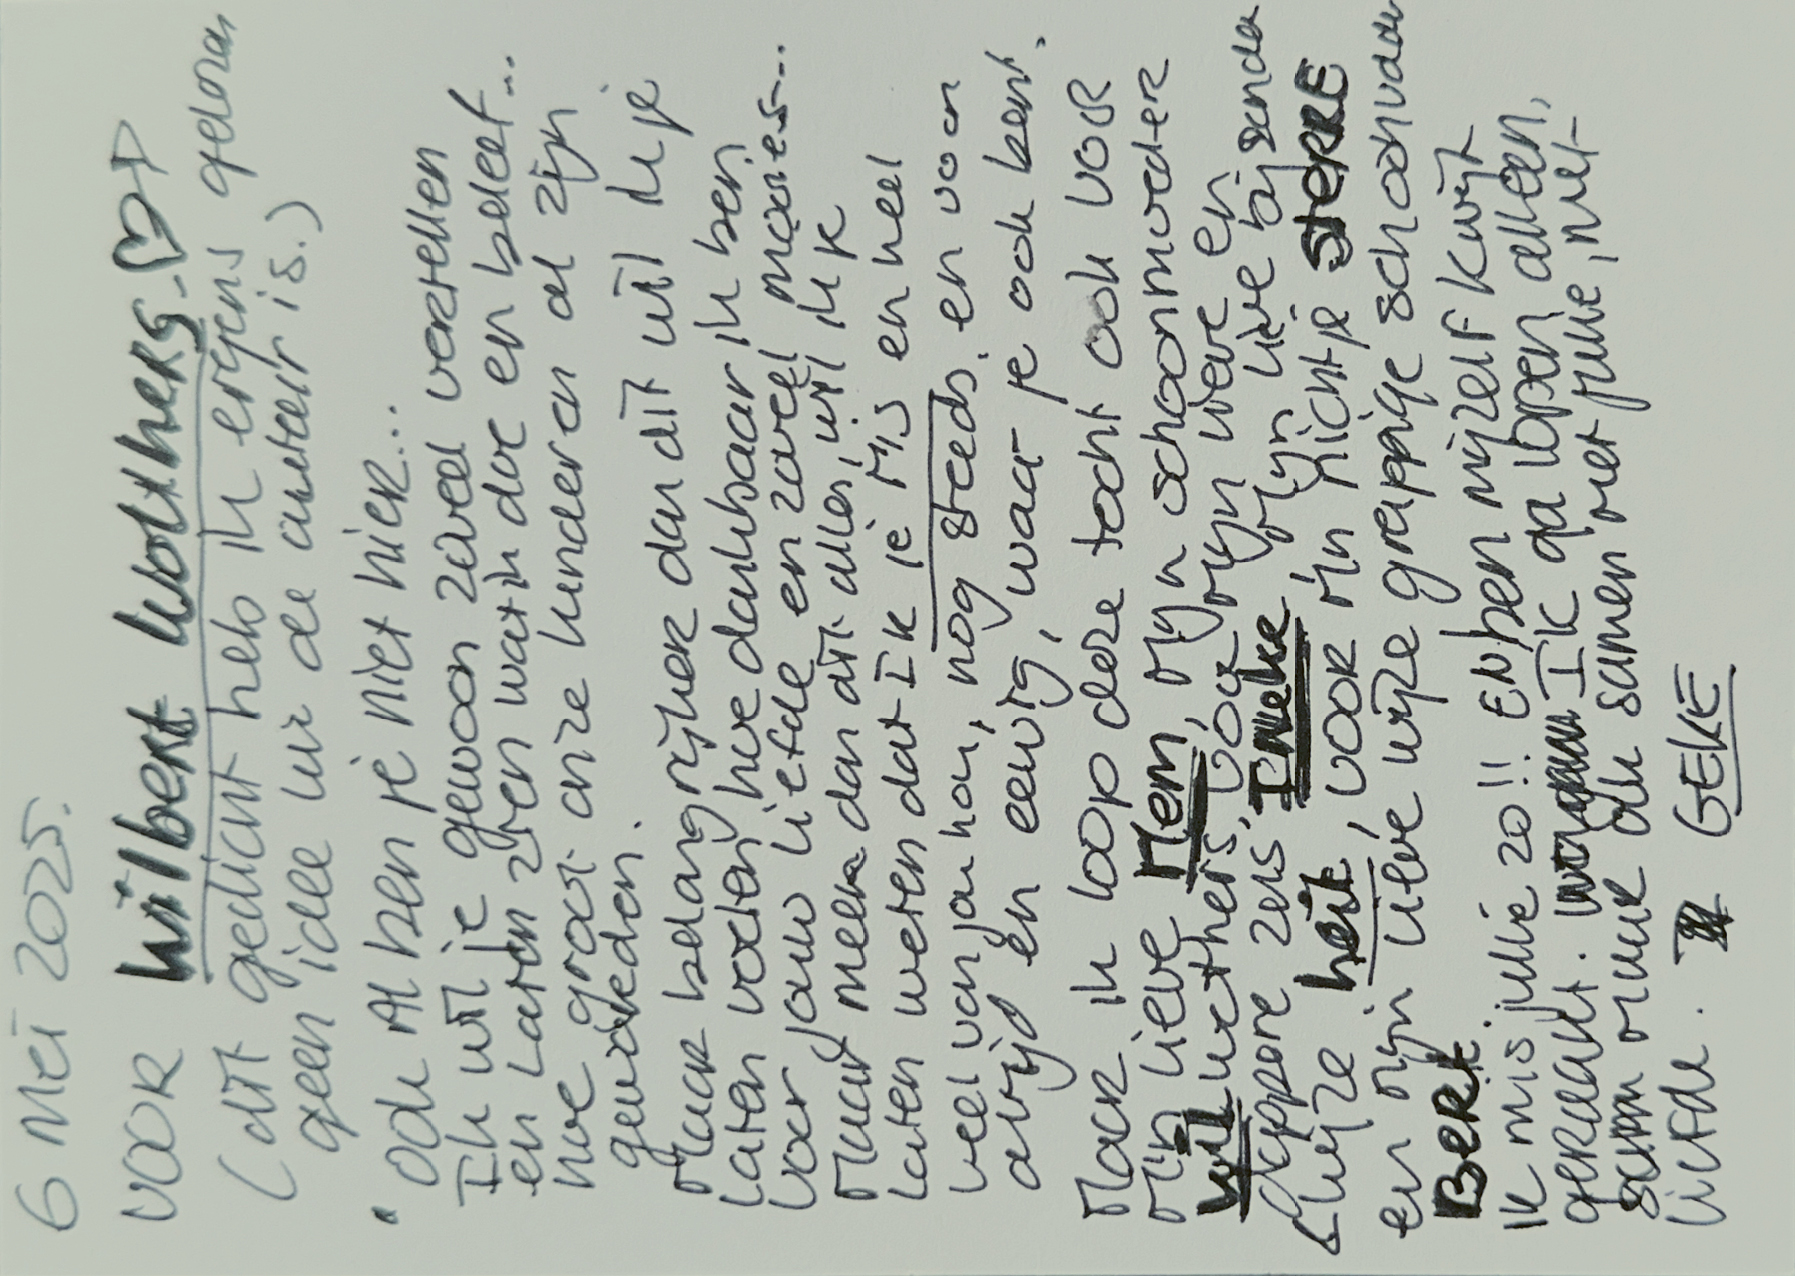 6 Mei 2025.
VOOR Wilbert Wolthers
(dit gedicht heb ik ergens gelezen,
geen idee wie de auteur is.)
"Ook Al ben je niet hier...
Ik wil je gewoon zoveel vertellen
en laten zien wat ik doe en beleef...
hoe groot onze kinderen al zijn
geworden.
Maar belangrijker dan dit wil ik je
laten weten hoe dankbaar ik ben
voor jouw liefde en zoveel moois...
Maar meer dan dit alles, wil ik
laten weten dat IK je Mis en heel
veel van jou hou, nog steeds, en voor
altijd en eeuwig, waar je ook bent.
Maar ik loop deze tocht ook VOOR
Mijn lieve Mem, Mijn schoonmoeder
Wil Wolthers, voor Mijn lieve en
dappere zus, Mijn lieve bijzonder
wijze heit, VOOR Mijn nichtje STERRE
en Mijn lieve wijze grappige schoonvader
BERT
IK mis jullie zo!! EN ben mijzelf kwijt
geraakt. IK ga lopen alleen,
samen maar ook samen met jullie, met
liefde. GEKE